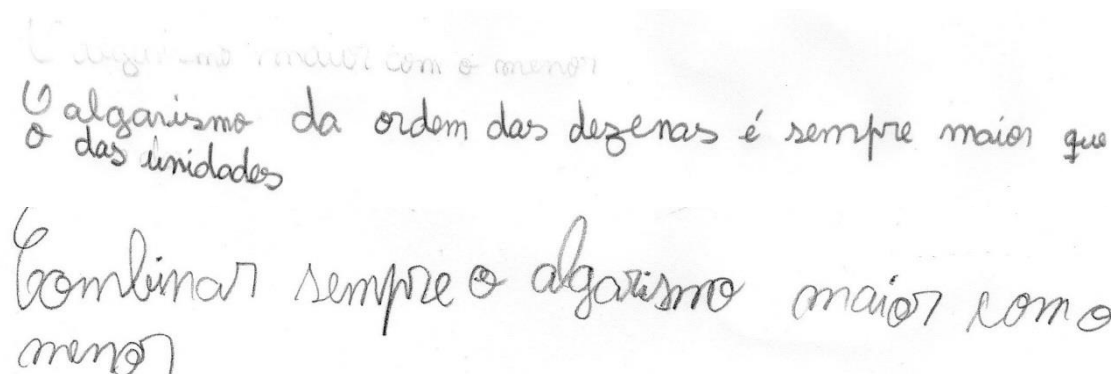 O algarismo maior com o menor
O algarismo da ordem das dezenas é sempre maior que
o das unidades
Combinar sempre o algarismo maior com o
menor